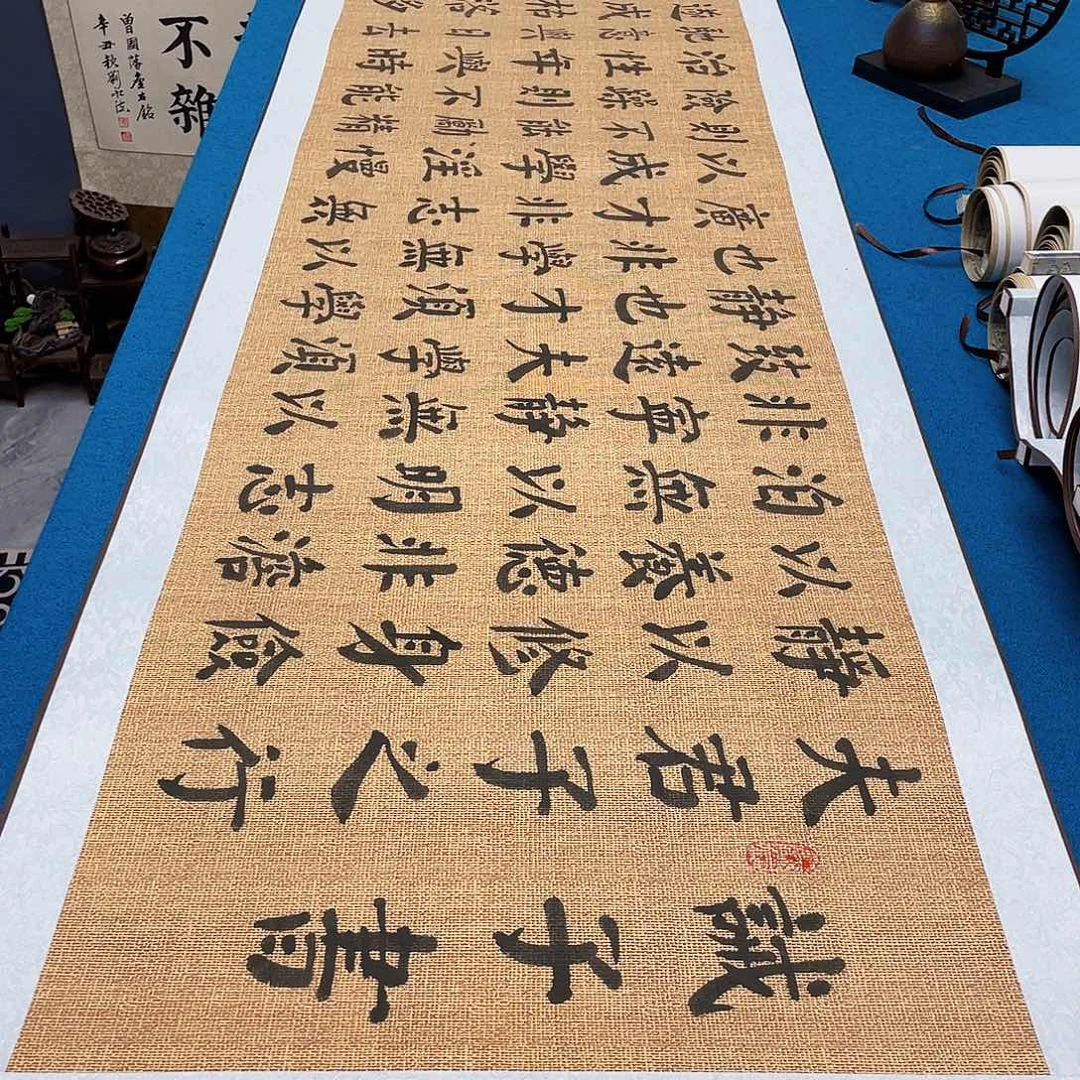 誡子書
夫君子之行
靜以修身儉
以養德非澹
泊無以明志
非寧靜無以
致遠夫學須
靜也才須學
也非學無以
廣才非志無
以成學淫慢
則不能勵精
險躁則不能
治性年與時
馳意與日去
遂成枯落多
不雜
曾國藩座右銘
辛丑秋劉